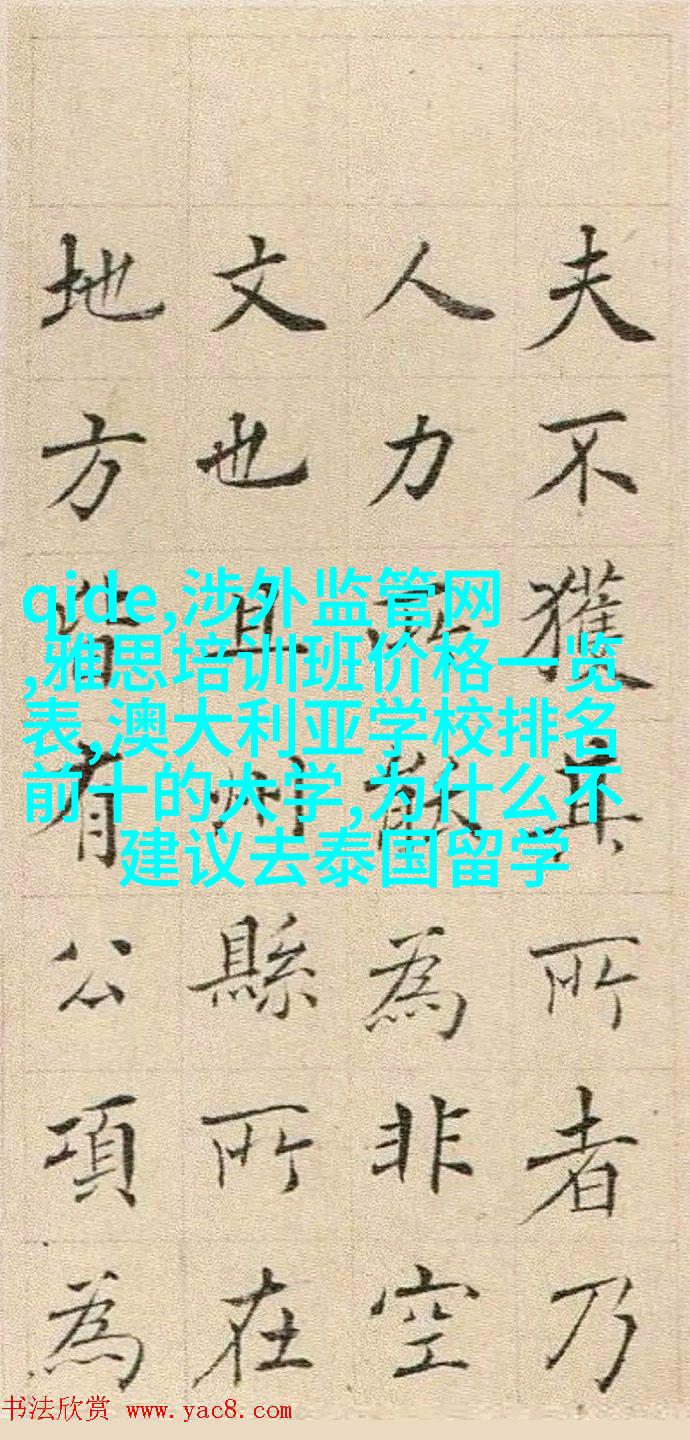 夫不獲其所者乃
人力所能為非空
文也且州縣所在
地方皆有公項為
qide,涉外监管网
,雅思培训班价格一览
表,澳大利亚学校排名
前十的大学,为什么不
建议去泰国留学
书法欣赏 www.yac8.com